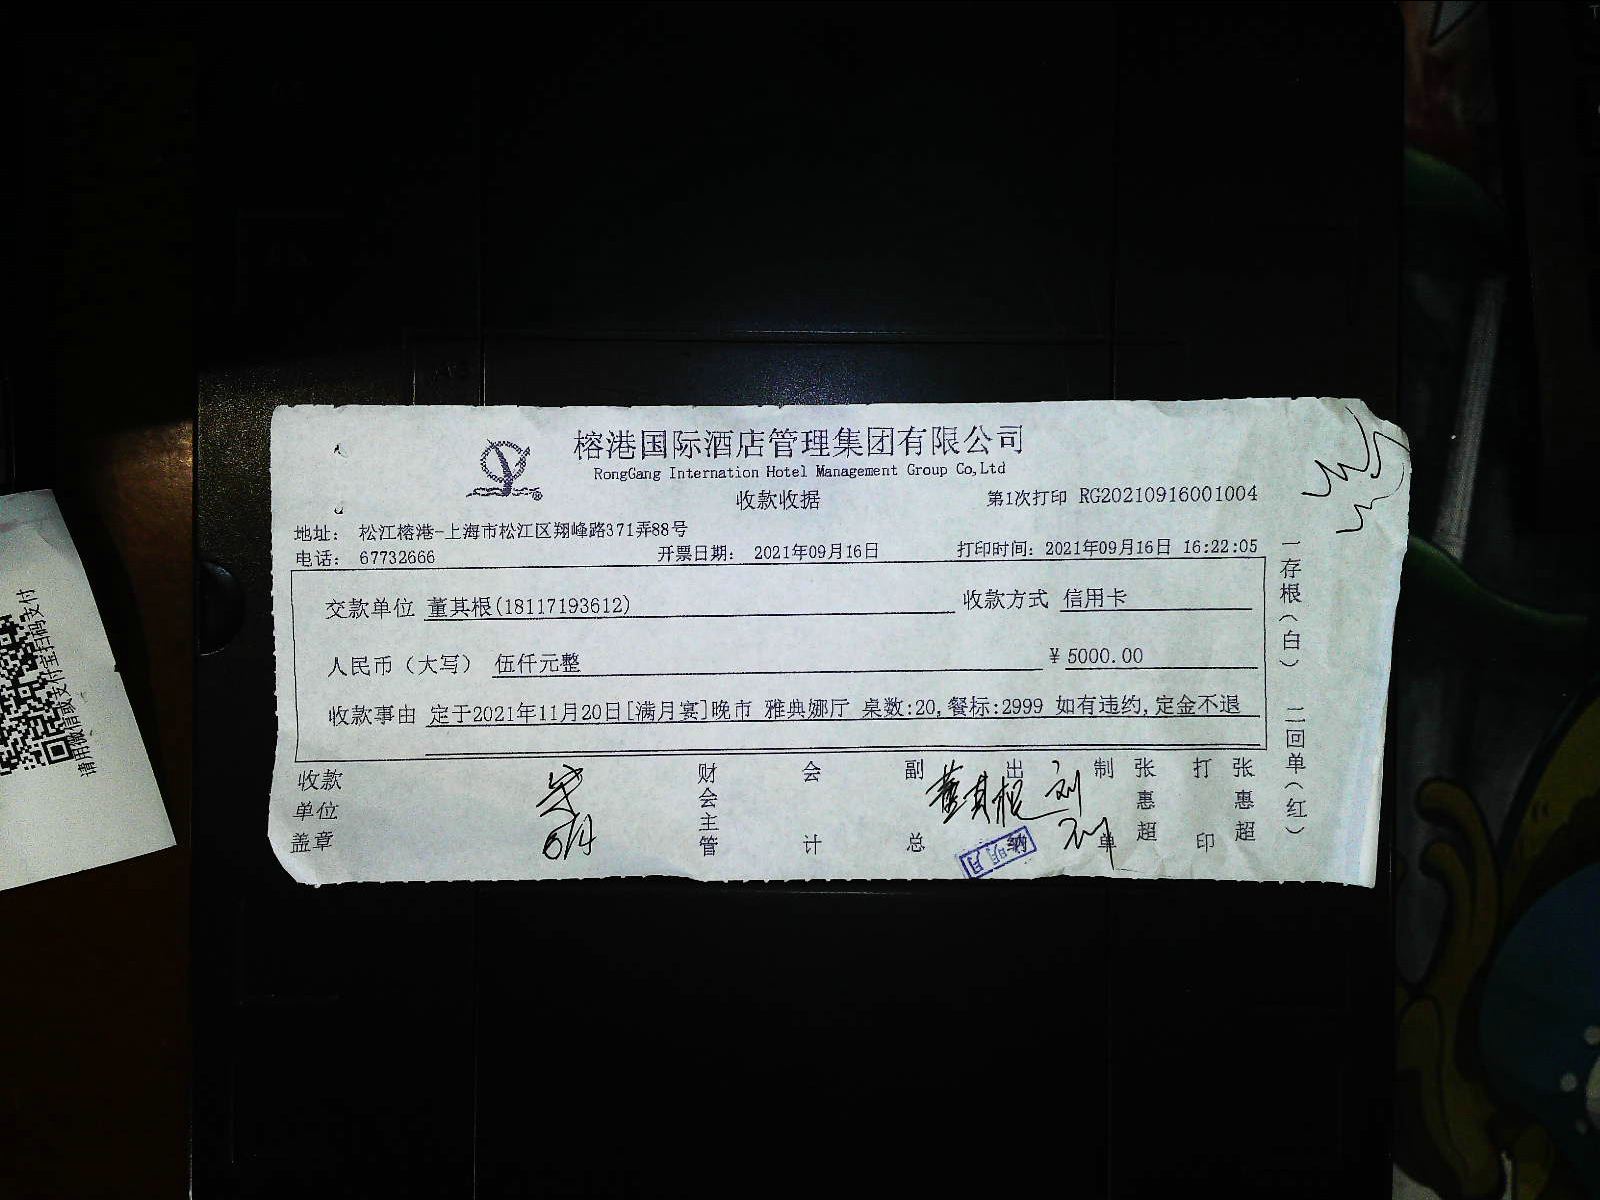 榕港国际酒店管理集团有限公司
RongGang Internation Hotel Management Group Co,Ltd
收款收据
第1次打印 RG20210916001004
地址： 松江榕港-上海市松江区翔峰路371弄88号
电话： 67732666 开票日期： 2021年09月16日 打印时间：2021年09月16日 16:22:05
交款单位 董其根(18117193612) 收款方式 信用卡
人民币（大写） 伍仟元整 ￥5000.00
收款事由 定于2021年11月20日[满月宴]晚市 雅典娜厅 桌数:20,餐标:2999 如有违约,定金不退
收款单位盖章 财会主管 会计 副总 董其根 出纳 刘 制单 张惠超 打印 张惠超
一存根（白） 二回单（红）
请用微信或支付宝扫码支付